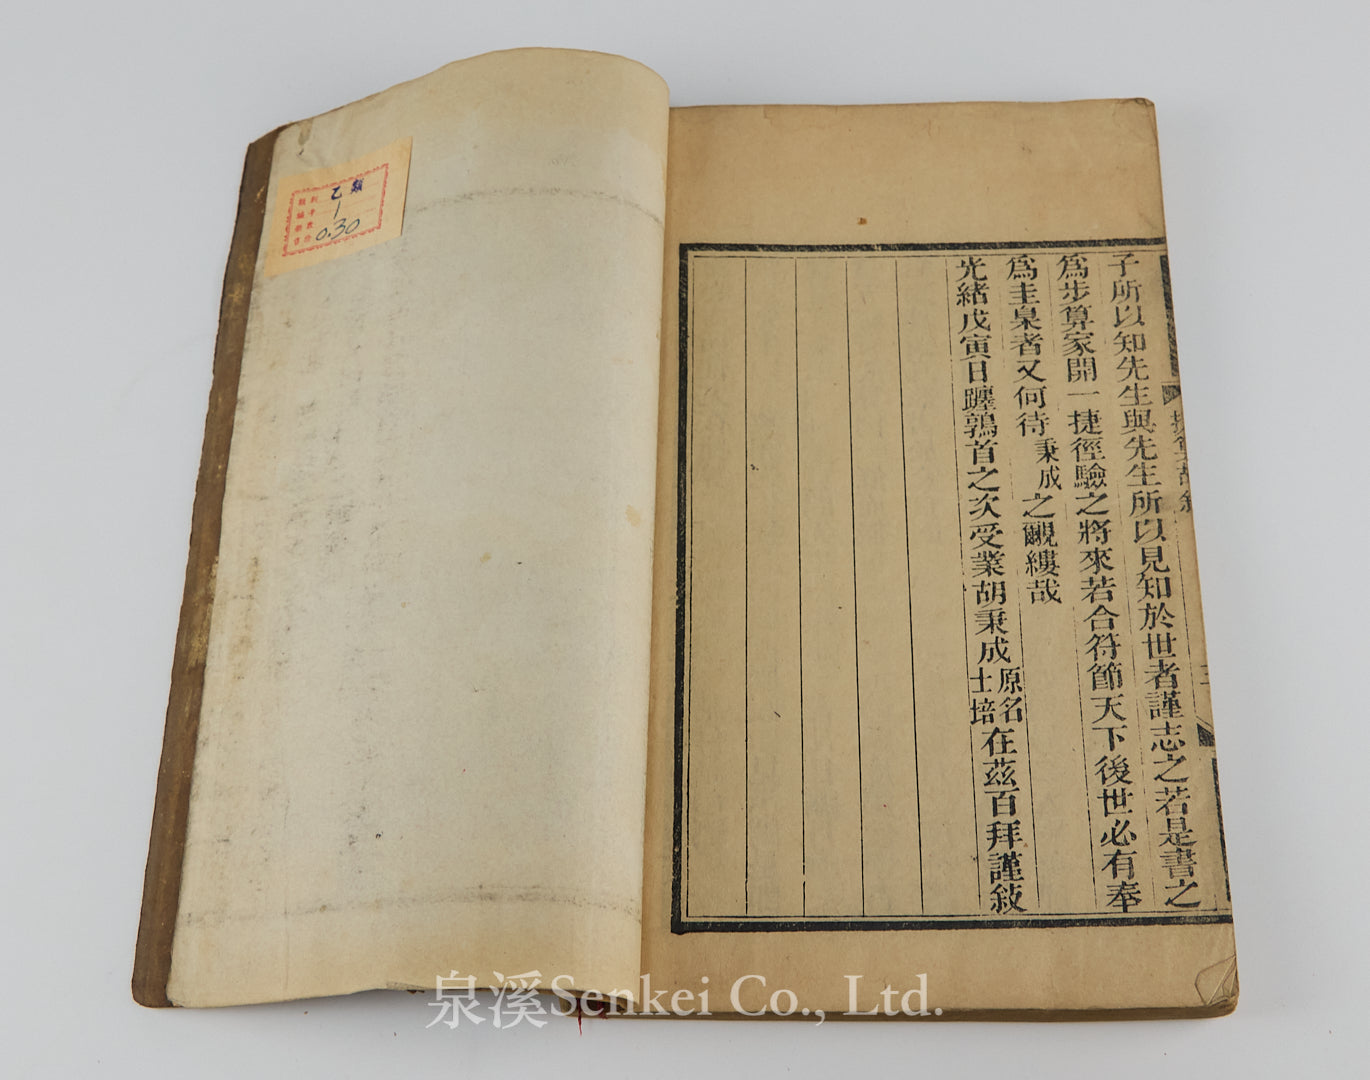 子所以知先生與先生所以見知於世者謹志之若是書之
為步算家開一捷徑驗之將來若合符節天下後世必有奉
為圭臬者又何待秉成之覼縷哉
光緒戊寅日躔鶉首之次受業胡秉成原名士培在茲百拜謹敍
乙類
1
0.30
泉溪Senkei Co., Ltd.